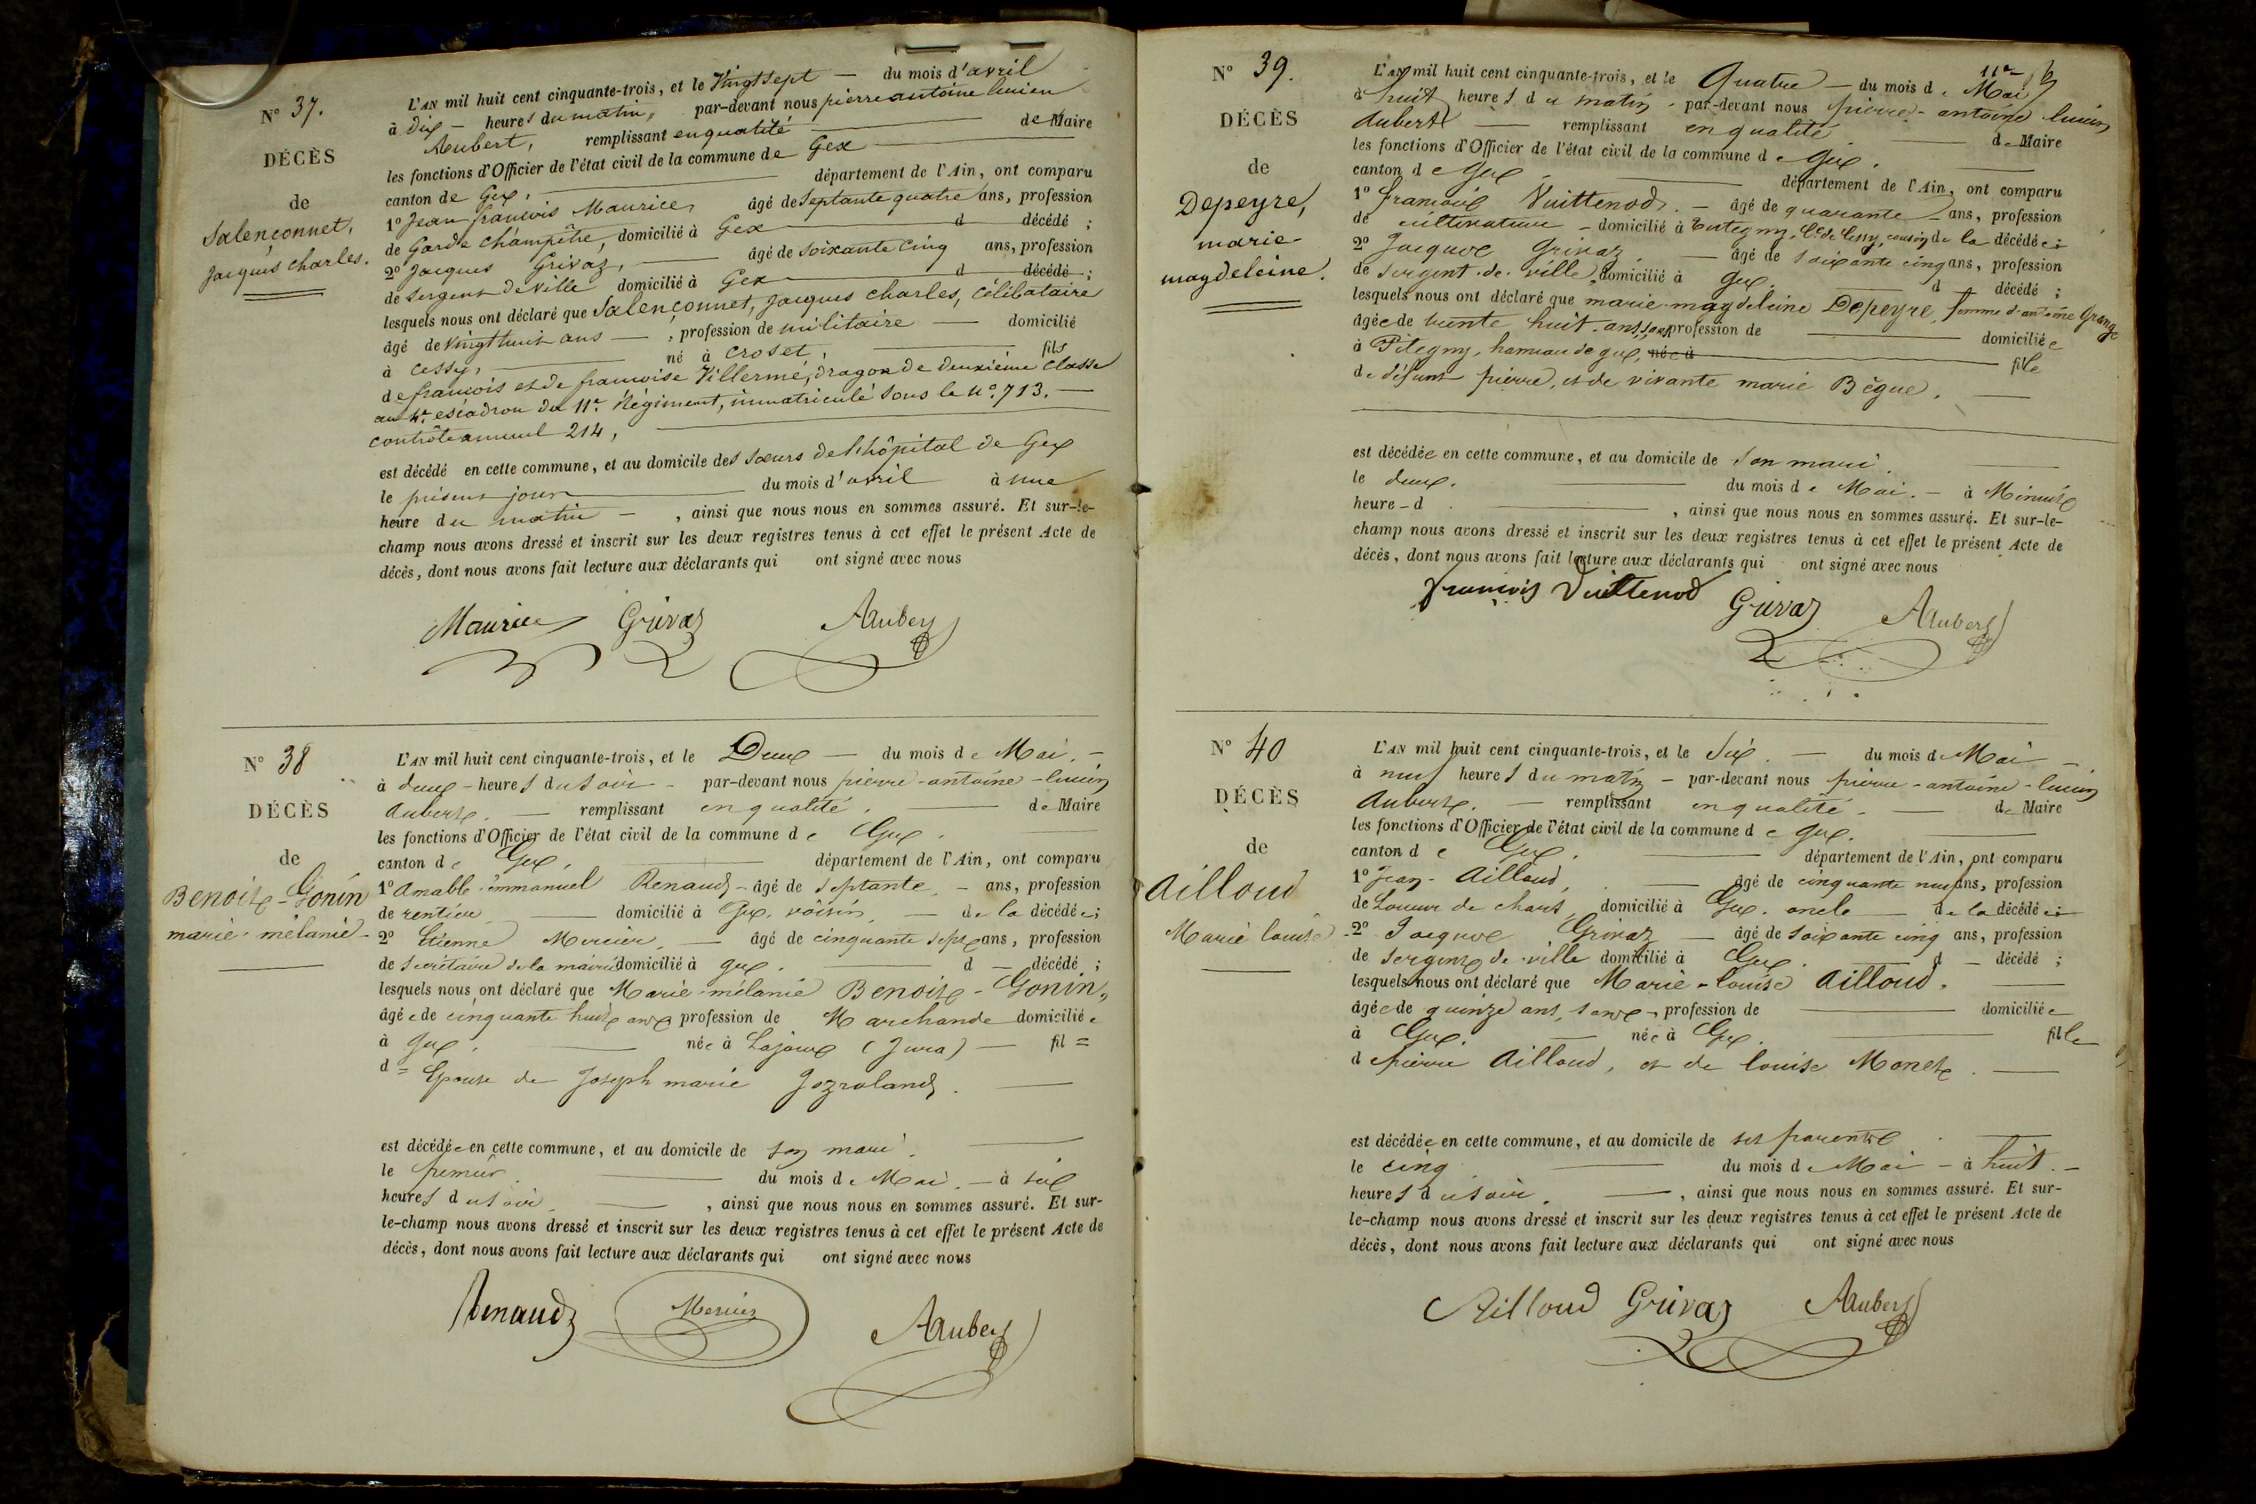 N° 37.
DÉCÈS
de
Salenconnet,
jacques charles.
L'AN mil huit cent cinquante-trois, et le Vingtsept — du mois d'avril
à Dix — heures du matin, par-devant nous pierre antoine lucien
Aubert, remplissant en qualité de Maire
les fonctions d'Officier de l'état civil de la commune de Gex
canton de Gex, département de l'Ain, ont comparu
1° Jean françois Maurice, âgé de Septante quatre ans, profession
de Garde champêtre, domicilié à Gex d décédé ;
2° Jacques Grivaz, âgé de soixante cinq ans, profession
de Sergent de Ville domicilié à Gex d décédé ;
lesquels nous ont déclaré que Salenconnet, Jacques charles, célibataire
âgé de vingt huit ans — , profession de militaire — domicilié
à Cessy, né à Croset, fils
de françois et de françoise Villermé, dragon de deuxième classe
au 4e escadron du 11e Régiment, immatriculé sous le n° 713. —
contrôle annuel 214,
est décédé en cette commune, et au domicile des soeurs de l'hôpital de Gex
le présent jour du mois d'avril à une
heure du matin — , ainsi que nous nous en sommes assuré. Et sur-le-
champ nous avons dressé et inscrit sur les deux registres tenus à cet effet le présent Acte de
décès, dont nous avons fait lecture aux déclarants qui ont signé avec nous
Maurice Grivaz AAubert
N° 38
DÉCÈS
de
Benoit-Gonin
marie-mélanie
L'AN mil huit cent cinquante-trois, et le Deux — du mois de Mai. —
à deux - heures du soir - par-devant nous pierre-antoine-lucien
Aubert. — remplissant en qualité. de Maire
les fonctions d'Officier de l'état civil de la commune de Gex.
canton de Gex. département de l'Ain, ont comparu
1° Amable-emmanuel Renaud - âgé de septante. - ans, profession
de rentier. domicilié à Gex. voisin. — de la décédée ;
2° Etienne Mercier. — âgé de cinquante sept ans, profession
de secrétaire de la mairie domicilié à gex. d — décédé ;
lesquels nous ont déclaré que Marie-mélanie Benoit-Gonin,
âgée de cinquante huit ans profession de Marchande domiciliée
à gex. née à Lajoux (Jura) — fil =
d = Epouse de Joseph marie Gozroland.
est décédée en cette commune, et au domicile de son mari.
le premier du mois de Mai. — à six
heures du soir. , ainsi que nous nous en sommes assuré. Et sur-
le-champ nous avons dressé et inscrit sur les deux registres tenus à cet effet le présent Acte de
décès, dont nous avons fait lecture aux déclarants qui ont signé avec nous
Renaud Mercier AAubert
N° 39.
DÉCÈS
de
Depeyre,
marie-
magdeleine.
L'AN mil huit cent cinquante-trois, et le Quatre — du mois de Mai
à huit heures du matin - par-devant nous pierre-antoine lucien
Aubert — remplissant en qualité de Maire
les fonctions d'Officier de l'état civil de la commune de Gex.
canton de Gex. département de l'Ain, ont comparu
1° françois Vuittenod. — âgé de quarante ans, profession
de cultivateur - domicilié à Tutegny, Cne de Cessy, cousin de la décédée ;
2° Jacques Grivaz. — âgé de soixante cinq ans, profession
de sergent-de-ville domicilié à Gex. d — décédé ;
lesquels nous ont déclaré que marie-magdeleine Depeyre, femme d'antoine Grange
âgée de trente huit-ans, sans profession de domiciliée
à Pitegny, hameau de gex, née à fille
de défunt pierre, et de vivante marie Bègue.
est décédée en cette commune, et au domicile de son mari.
le deux. du mois de Mai. — à Minuit
heure - d , ainsi que nous nous en sommes assuré. Et sur-le-
champ nous avons dressé et inscrit sur les deux registres tenus à cet effet le présent Acte de
décès, dont nous avons fait lecture aux déclarants qui ont signé avec nous
françois Vuittenod Grivaz AAubert
N° 40
DÉCÈS
de
Ailloud
Marie louise
L'AN mil huit cent cinquante-trois, et le Six. — du mois de Mai —
à neuf heures du matin - par-devant nous pierre-antoine-lucien
Aubert. — remplissant en qualité. de Maire
les fonctions d'Officier de l'état civil de la commune de gex.
canton de Gex. département de l'Ain, ont comparu
1° Jean-Ailloud, âgé de cinquante neuf ans, profession
de Loueur de chars, domicilié à Gex. oncle — de la décédée ;
2° Jacques Grivaz — âgé de soixante cinq ans, profession
de sergent de ville domicilié à Gex. d — décédé ;
lesquels nous ont déclaré que Marie-louise Ailloud.
âgée de quinze ans, sans profession de domiciliée
à Gex. née à Gex. fille
de pierre Ailloud, et de louise Monet.
est décédée en cette commune, et au domicile de ses parents
le cinq du mois de Mai — à huit. —
heures du soir. , ainsi que nous nous en sommes assuré. Et sur-
le-champ nous avons dressé et inscrit sur les deux registres tenus à cet effet le présent Acte de
décès, dont nous avons fait lecture aux déclarants qui ont signé avec nous
Ailloud Grivaz AAubert